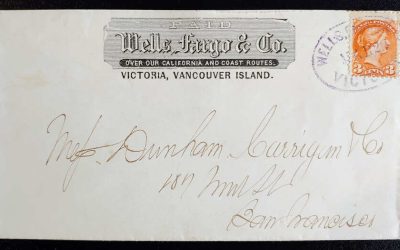 PAID
Wells, Fargo & Co.
OVER OUR CALIFORNIA AND COAST ROUTES.
VICTORIA, VANCOUVER ISLAND.
WELLS
VICTO
3 3
Mess Dunham Carrigan & Co
107
San Francisco